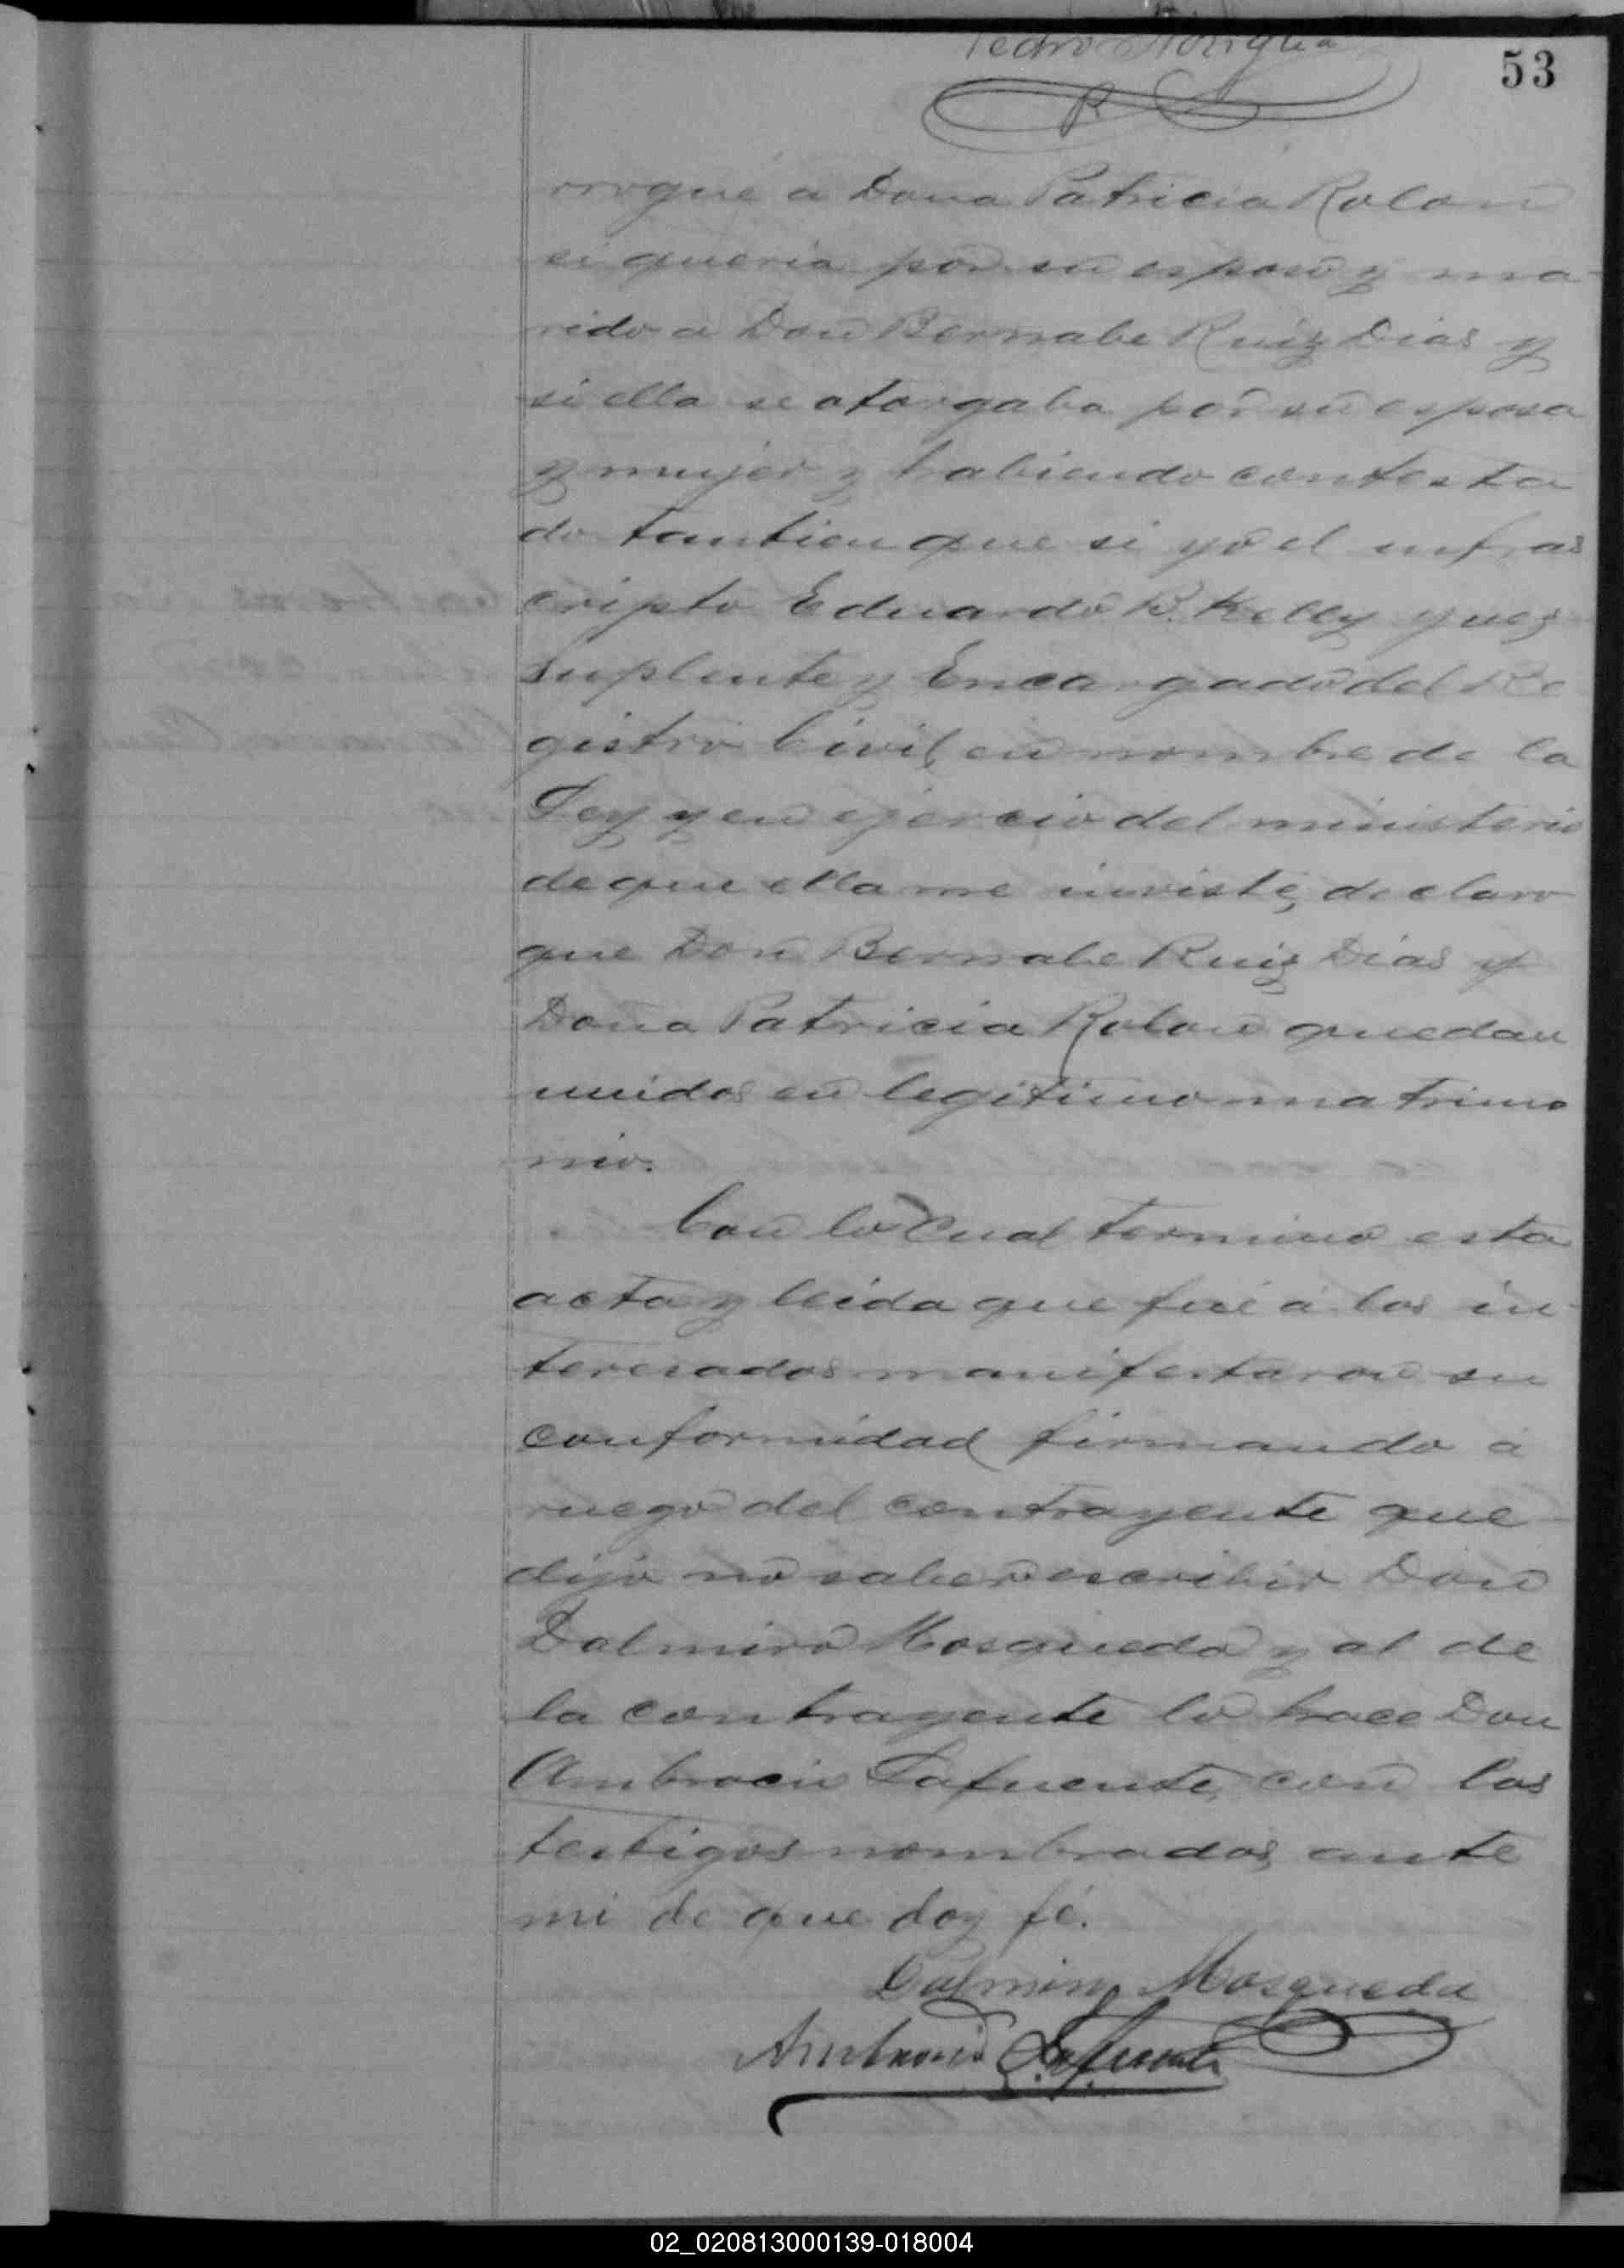 Pedro
53
rrogué a Doña Patricia Rolon
si queria por su esposo y ma-
rido a Don Bernabe Ruiz Dias y
si ella se otorgaba por su esposa
y mujer y habiendo contesta
do tambien que si yo el infras
cripto Eduardo B. Kelly Juez
Suplente y Encargado del Re
gistro Civil, en nombre de la
Ley y en ejercio del ministerio
de que ella me inviste, declaro
que Don Bernabe Ruiz Dias y
Doña Patricia Rolon quedan
unidos en legitimo matrimo
nio.
Con lo Cual termino esta
acta y leida que fué á los in-
teresados manifestaron su
conformidad firmando á
ruego del contrayente que
dijo no saber escribir Don
Dalmiro Mosqueda y al de
la contrayente lo hace Don
Ambrocio Lafuente, con los
testigos nombrados, ante
mi de que doy fé.
Dalmiro Mosqueda
Ambrosio Lafuente
02_020813000139-018004